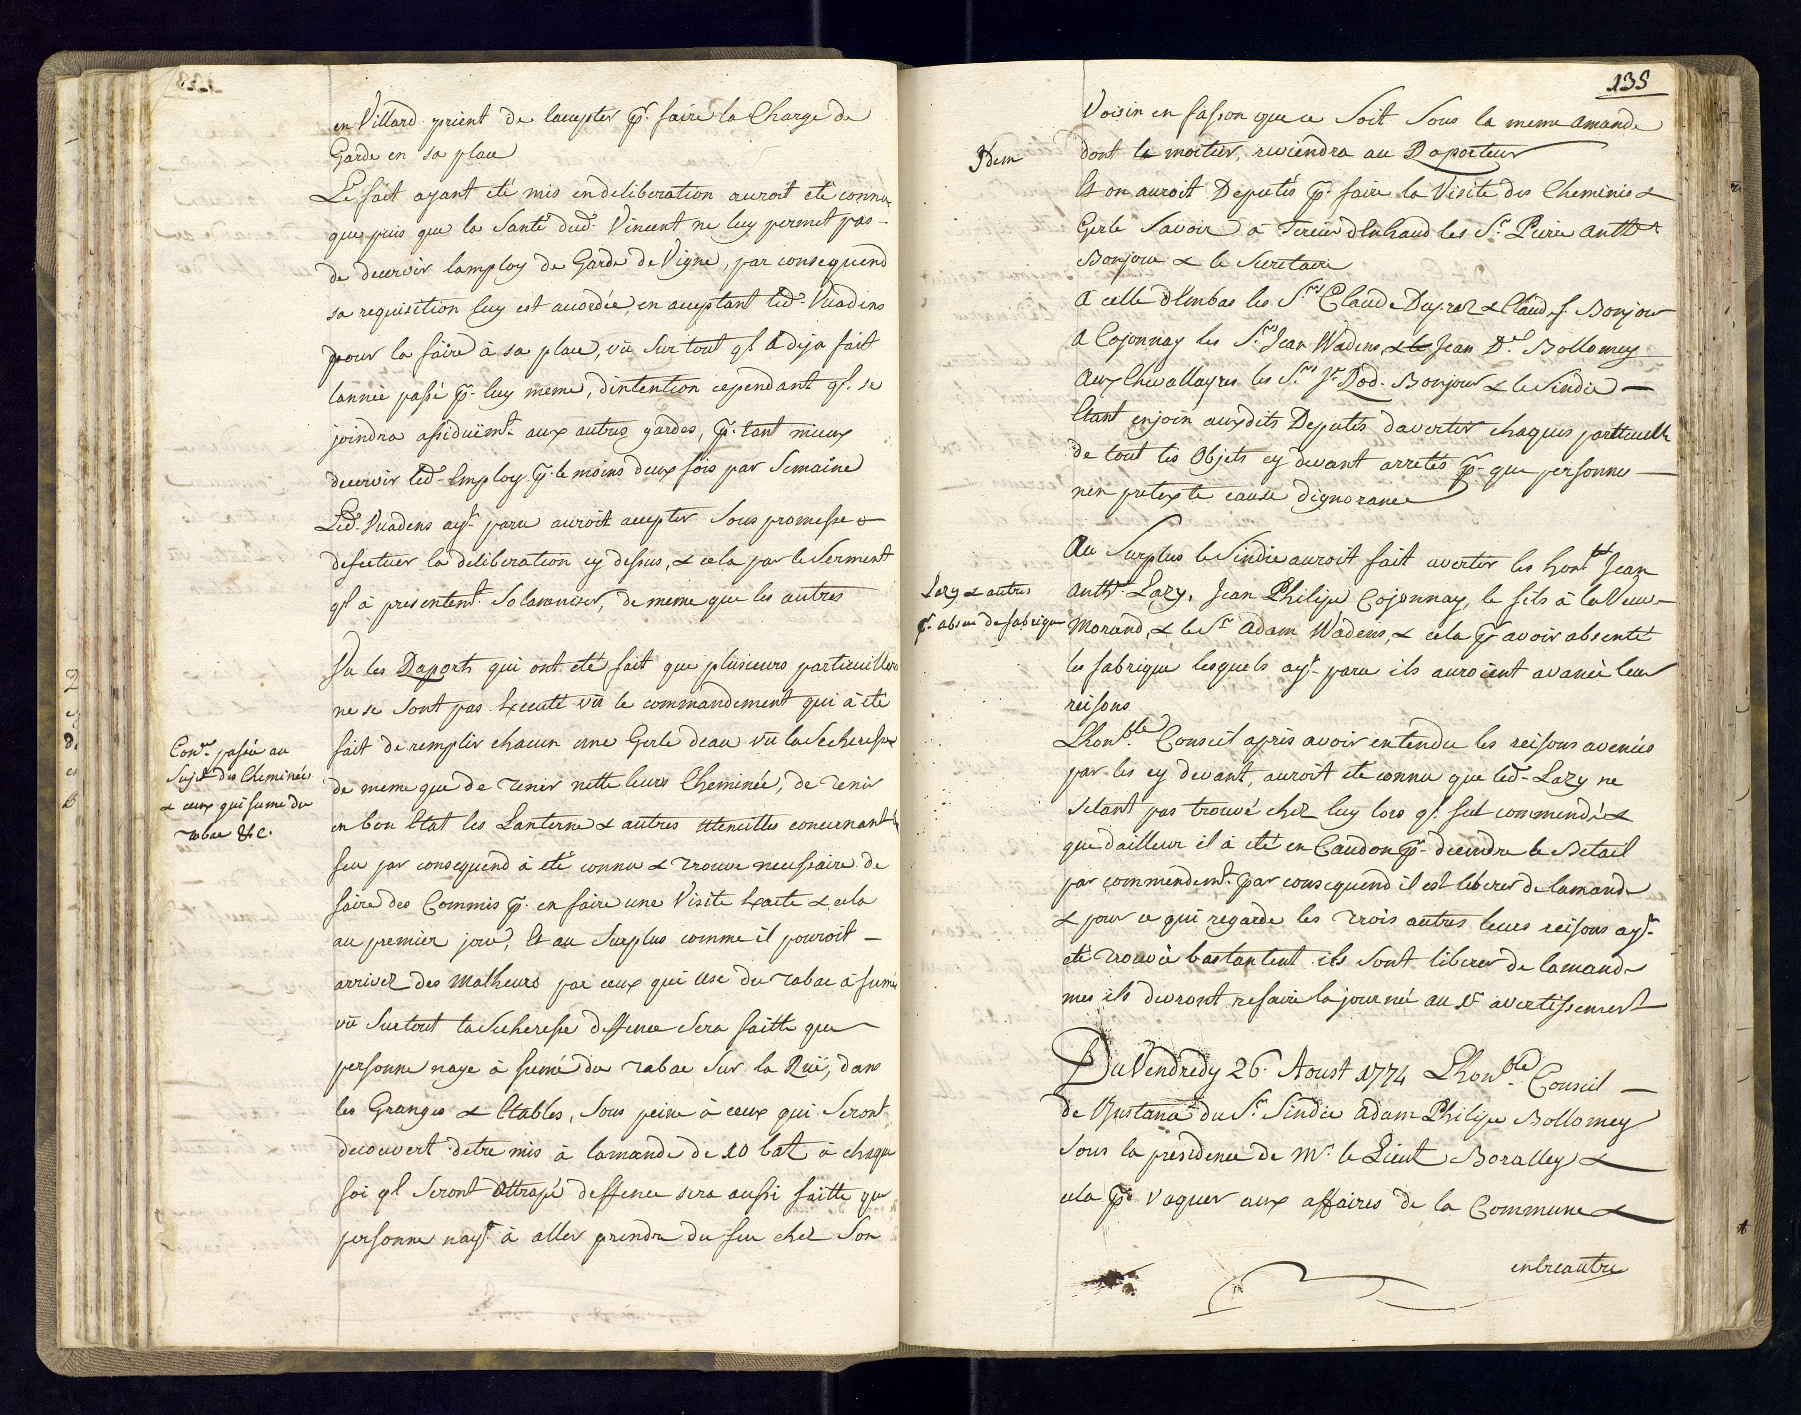 en Villard prient de laccepter pr. faire la Charge de
Garde en sa place
Le fait ayant été mis en deliberation auroit été connu
que puis que la Santé dud. Vincent ne luy permet pas
de decervir lamploy de Garde de Vigne, par consequend
sa requisition luy est accordée, en acceptant led. Vuadens
pour la faire à sa place, vü sur tout ql. à deja fait
lannée passé pr. luy meme, dintention cependant ql. se
joindra assiduëmt. aux autres gardes, pr. tant mieux
decervir led. Employ pr. le moins deux fois par Semaine
Led. Vuadens ayt. paru auroit accepter Sous promesse
desectuer la deliberation cy dessus, & cela par le Serment
ql. à presentemt. Solamniser, de meme que les autres
Vu les Raports qui ont été fait que plusieurs particuillers
ne se Sont pas Executé vü le commandement qui à été
fait de remplir chacun une Gerle deau vü la Secheresse
Conr. passée au
Sujet des Cheminée
& ceux qui fume du
tabac &c.
de meme que de Tenir nette leurs Cheminée, de Tenir
en bon Etat les Lanterne & autres Utencilles concernant le
feu par consequend à été connu & Trouvé necessaire de
faire des Commis pr. en faire une Visite Exacte & cela
au premier jour, Et au Surplus comme il pouroit
arriver des Malheurs par ceux qui use du Tabac à fumé
vü Surtout la Secheresse deffence Sera faitte que
personne naye à fumé du Tabac Sur la Rüe, dans
les Granges & Etables, Sous peine à ceux qui Seront
decouvert detre mis à lamande de 10 bat à chaque
foi ql Seront Attrapé deffence sera aussi faitte que
personne nayt. à aller prendre du feu chez Son
135
Voisin en fasson que ce Soit Sous la meme amande
Idem
dont la moitier, reviendra au Raporteur
Et on auroit Deputés pr. faire la Visite des Cheminés &
Gerle Savoir à dEnhaud les Sr. Pierre Anthe
Bonjour & le Secretaire
A celle dEmbas les Srs. Claude Duprez & Claud f. Bonjour
A Cojonnay les Srs. Jean Wadens, & le Jean Dl. Bollomey
Aux Chevallayres les Srs. Jn Rod. Bonjour & le Sindic
Etant enjoin auxdits Deputés davertir chaques particuille
de tout les Objets cy devant arretés pr. que personne
nen pretexte cause dignorance
Au Surplus le Sindic auroit fait avertir les hont. Jean
Lazy & autres
pr. absence de fabrique
Anthe. Lazy, Jean Philipe Cojonnay, le fils à la Veuve
Morand, & le Sr Adam Wadens, & cela pr. avoir absenté
les fabrique lesquels ayt. paru ils auroient avancé leur
reisons
Lhonble. Conseil après avoir entendu les reisons avencés
par les cy devant, auroit été connu que led. Lazy ne
setant pas trouvé chez luy lors ql. fut commendé &
que dailleur il à été en Caudon pr. decendre le Betail
par commendemt. par consequend il est liberer de lamande
& pour ce qui regarde les Trois autres leurs reisons ayt.
été Trouvée bastantent ils Sont liberer de lamande
mes ils devront refaire la journée au 1er avertissement
Du Vendredy 26. Aoust 1774 Lhonble. Conseil
de Vinstance du Sr. Sindic Adam Philipe Bollomey
Sous la presidence de Mr. le Lieut Boralley &
cela pr. vaquer aux affaires de la Commune &
entreautre